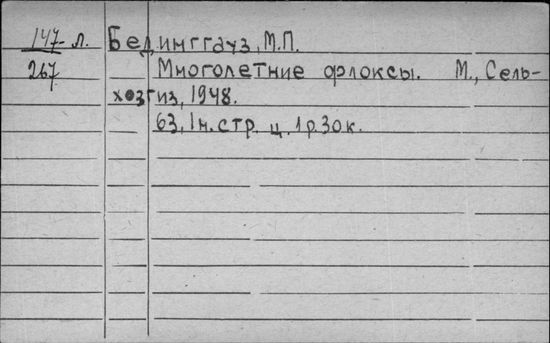 147 л. Бединггауз, М.П.
267 Многолетние флоксы. М., Сель-
хозгиз, 1948.
63, 1 н. стр. ц. 1 р. 30 к.